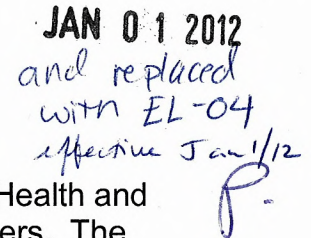 JAN 01 2012
and replaced
with EL-04
effective Jan 1/12
P.
Health and
ers. The